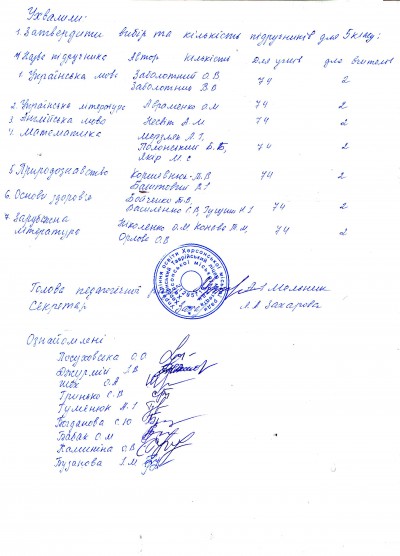 Ухвалили:
1. Затвердити вибір та кількість підручників для 5 класу:
№ Назва підручника Автор Кількість Для учнів для вчителя
1. Українська мова Заболотний О.В 74 2
Заболотний В.В
2. Українська література Авраменко О.М 74 2
3. Англійська мова Несвіт А.М 74 2
4. Математика Мерзляк А.Г,
Полонський В.Б, 74 2
Якір М.С
5. Природознавство Коршевнюк Т.В 74 2
Баштовий В.І
6. Основи здоров'я Бойченко Т.Є,
Василенко С.В, Гущина Н.І 74 2
7. Зарубіжна Ніколенко О.М Конєва Т.М, 74 2
література Орлова О.В
Голова педагогічної ради А.А Мельник
Секретар Л.А Захарова
Ознайомлені:
Посуховська О.О
О.А
Гринько С.В
Гуменюк Н.І
Богданова С.Ю
Бабак О.М
Калініна О.В
Бузанова І.М